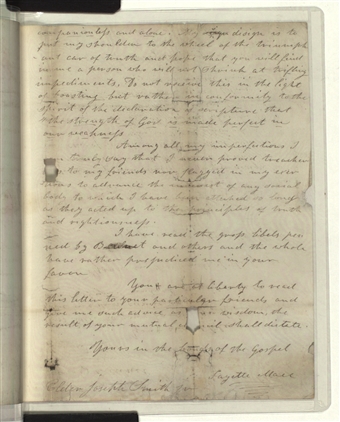 companionless and alone. My design is to
put my shoulder to the wheel of the triumph
ant car of truth and hope that you will find
in me a person who will not shrink at trifling
impediments. Do not receive this in the light
of boasting but rather in conformity to the
spirit of the declaration of scripture that
the strength of God is made perfect in
our weakness.
Among all my imperfections I
can truly say that I never proved treacher
to my friends nor flagged in my exer
tions to advance the interest of any social
body to which I have been attached so long
as they acted up to the principles of truth
and righteousness.
I have read the gross libels pen
ned by and others and the whole
have rather prejudiced me in your
favor.
You are at liberty to read
this letter to your particular friends and
give me such advice as your wisdom, the
result of your mutual council shall dictate.
Yours in the of the Gospel
Elder Joseph Smith